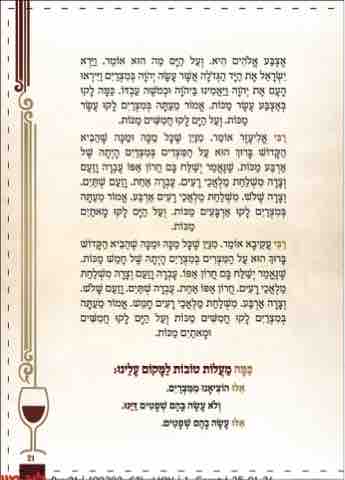 אֶצְבַּע אֱלֹהִים הִיא. וְעַל הַיָּם מַה הוּא אוֹמֵר. וַיַּרְא
יִשְׂרָאֵל אֶת הַיָּד הַגְּדֹלָה אֲשֶׁר עָשָׂה יְהֹוָה בְּמִצְרַיִם וַיִּירְאוּ
הָעָם אֶת יְהֹוָה וַיַּאֲמִינוּ בַּיהֹוָה וּבְמֹשֶׁה עַבְדּוֹ. כַּמָּה לָקוּ
בְאֶצְבַּע עֶשֶׂר מַכּוֹת. אֱמוֹר מֵעַתָּה בְּמִצְרַיִם לָקוּ עֶשֶׂר
מַכּוֹת. וְעַל הַיָּם לָקוּ חֲמִשִּׁים מַכּוֹת.
רַבִּי אֱלִיעֶזֶר אוֹמֵר. מִנַּיִן שֶׁכָּל מַכָּה וּמַכָּה שֶׁהֵבִיא
הַקָּדוֹשׁ בָּרוּךְ הוּא עַל הַמִּצְרִים בְּמִצְרַיִם הָיְתָה שֶׁל
אַרְבַּע מַכּוֹת. שֶׁנֶּאֱמַר יְשַׁלַּח בָּם חֲרוֹן אַפּוֹ עֶבְרָה וָזַעַם
וְצָרָה מִשְׁלַחַת מַלְאֲכֵי רָעִים. עֶבְרָה אַחַת. וָזַעַם שְׁתַּיִם.
וְצָרָה שָׁלֹשׁ. מִשְׁלַחַת מַלְאֲכֵי רָעִים אַרְבַּע. אֱמוֹר מֵעַתָּה
בְּמִצְרַיִם לָקוּ אַרְבָּעִים מַכּוֹת. וְעַל הַיָּם לָקוּ מָאתַיִם
מַכּוֹת.
רַבִּי עֲקִיבָא אוֹמֵר. מִנַּיִן שֶׁכָּל מַכָּה וּמַכָּה שֶׁהֵבִיא הַקָּדוֹשׁ
בָּרוּךְ הוּא עַל הַמִּצְרִים בְּמִצְרַיִם הָיְתָה שֶׁל חָמֵשׁ מַכּוֹת.
שֶׁנֶּאֱמַר יְשַׁלַּח בָּם חֲרוֹן אַפּוֹ. עֶבְרָה וָזַעַם וְצָרָה מִשְׁלַחַת
מַלְאֲכֵי רָעִים. חֲרוֹן אַפּוֹ אַחַת. עֶבְרָה שְׁתַּיִם. וָזַעַם שָׁלֹשׁ.
וְצָרָה אַרְבַּע. מִשְׁלַחַת מַלְאֲכֵי רָעִים חָמֵשׁ. אֱמוֹר מֵעַתָּה
בְּמִצְרַיִם לָקוּ חֲמִשִּׁים מַכּוֹת וְעַל הַיָּם לָקוּ חֲמִשִּׁים
וּמָאתַיִם מַכּוֹת.
כַּמָּה מַעֲלוֹת טוֹבוֹת לַמָּקוֹם עָלֵינוּ:
אִלּוּ הוֹצִיאָנוּ מִמִּצְרַיִם.
וְלֹא עָשָׂה בָּהֶם שְׁפָטִים דַּיֵּנוּ.
אִלּוּ עָשָׂה בָהֶם שְׁפָטִים.
21